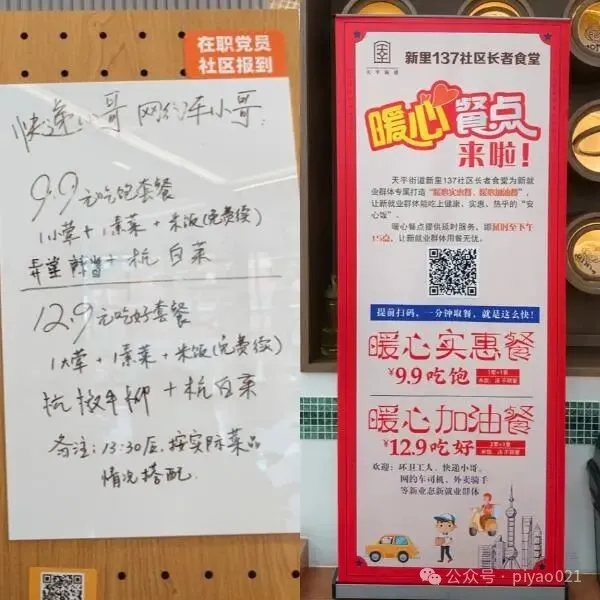 在职党员
社区报到
快递小哥 网约车小哥
9.9元吃饱套餐
1小荤+1素菜+米饭(免费续)
+杭白菜
12.9元吃好套餐
1大荤+1素菜+米饭(免费续)
杭椒牛柳+杭白菜
备注:13:30后,按实际菜品
情况搭配.
天平街道
新里137社区长者食堂
暖心餐点
来啦!
天平街道新里137社区长者食堂为新就
业群体专属打造“暖心实惠餐、暖心加油餐”,
让新就业群体能吃上健康、实惠、热乎的“安
心饭”。
暖心餐点提供延时服务,即延时至下午
15点,让新就业群体用餐无忧。
提前扫码,一分钟取餐,就是这么快!
暖心实惠餐
¥9.9吃饱
米饭、汤 不限量
暖心加油餐
¥12.9吃好
米饭、汤 不限量
欢迎:环卫工人、快递小哥、
网约车司机、外卖骑手
等新业态新就业群体
公众号·piyao021